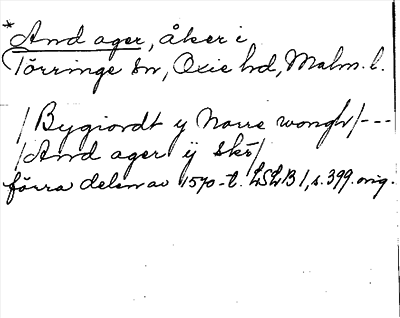 *And ager, åker i
Törringe sn, Oxie hd, Malm. l.
/Bygiordt y Norre wongh/---
/And ager ÿ skö/
förra delen av 1570-t. LSLB 1, s. 399. orig.